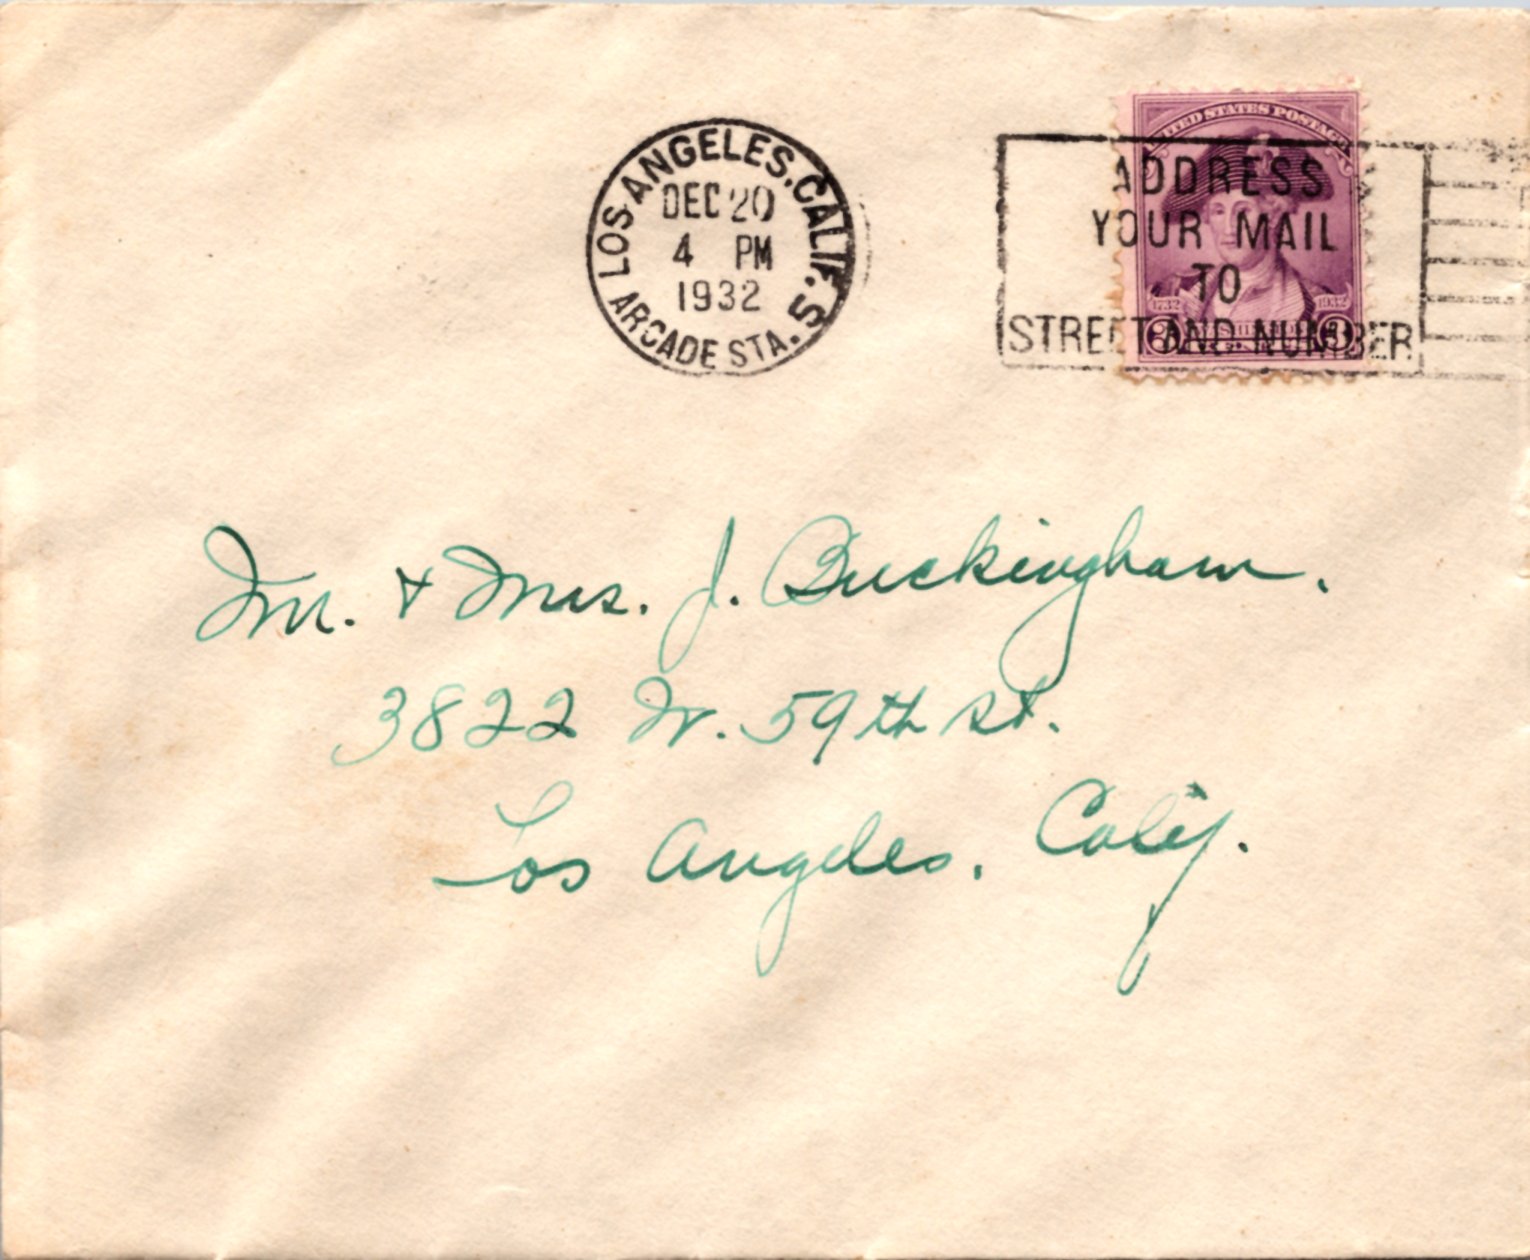 LOS ANGELES, CALIF. S
DEC 20
4 PM
1932
ARCADE STA.
UNITED STATES POSTAGE
1732 1932
3 3
ADDRESS
YOUR MAIL
TO
STREET AND NUMBER
Mr. & Mrs. J. Buckingham.
3822 W. 59th St.
Los Angeles, Calif.